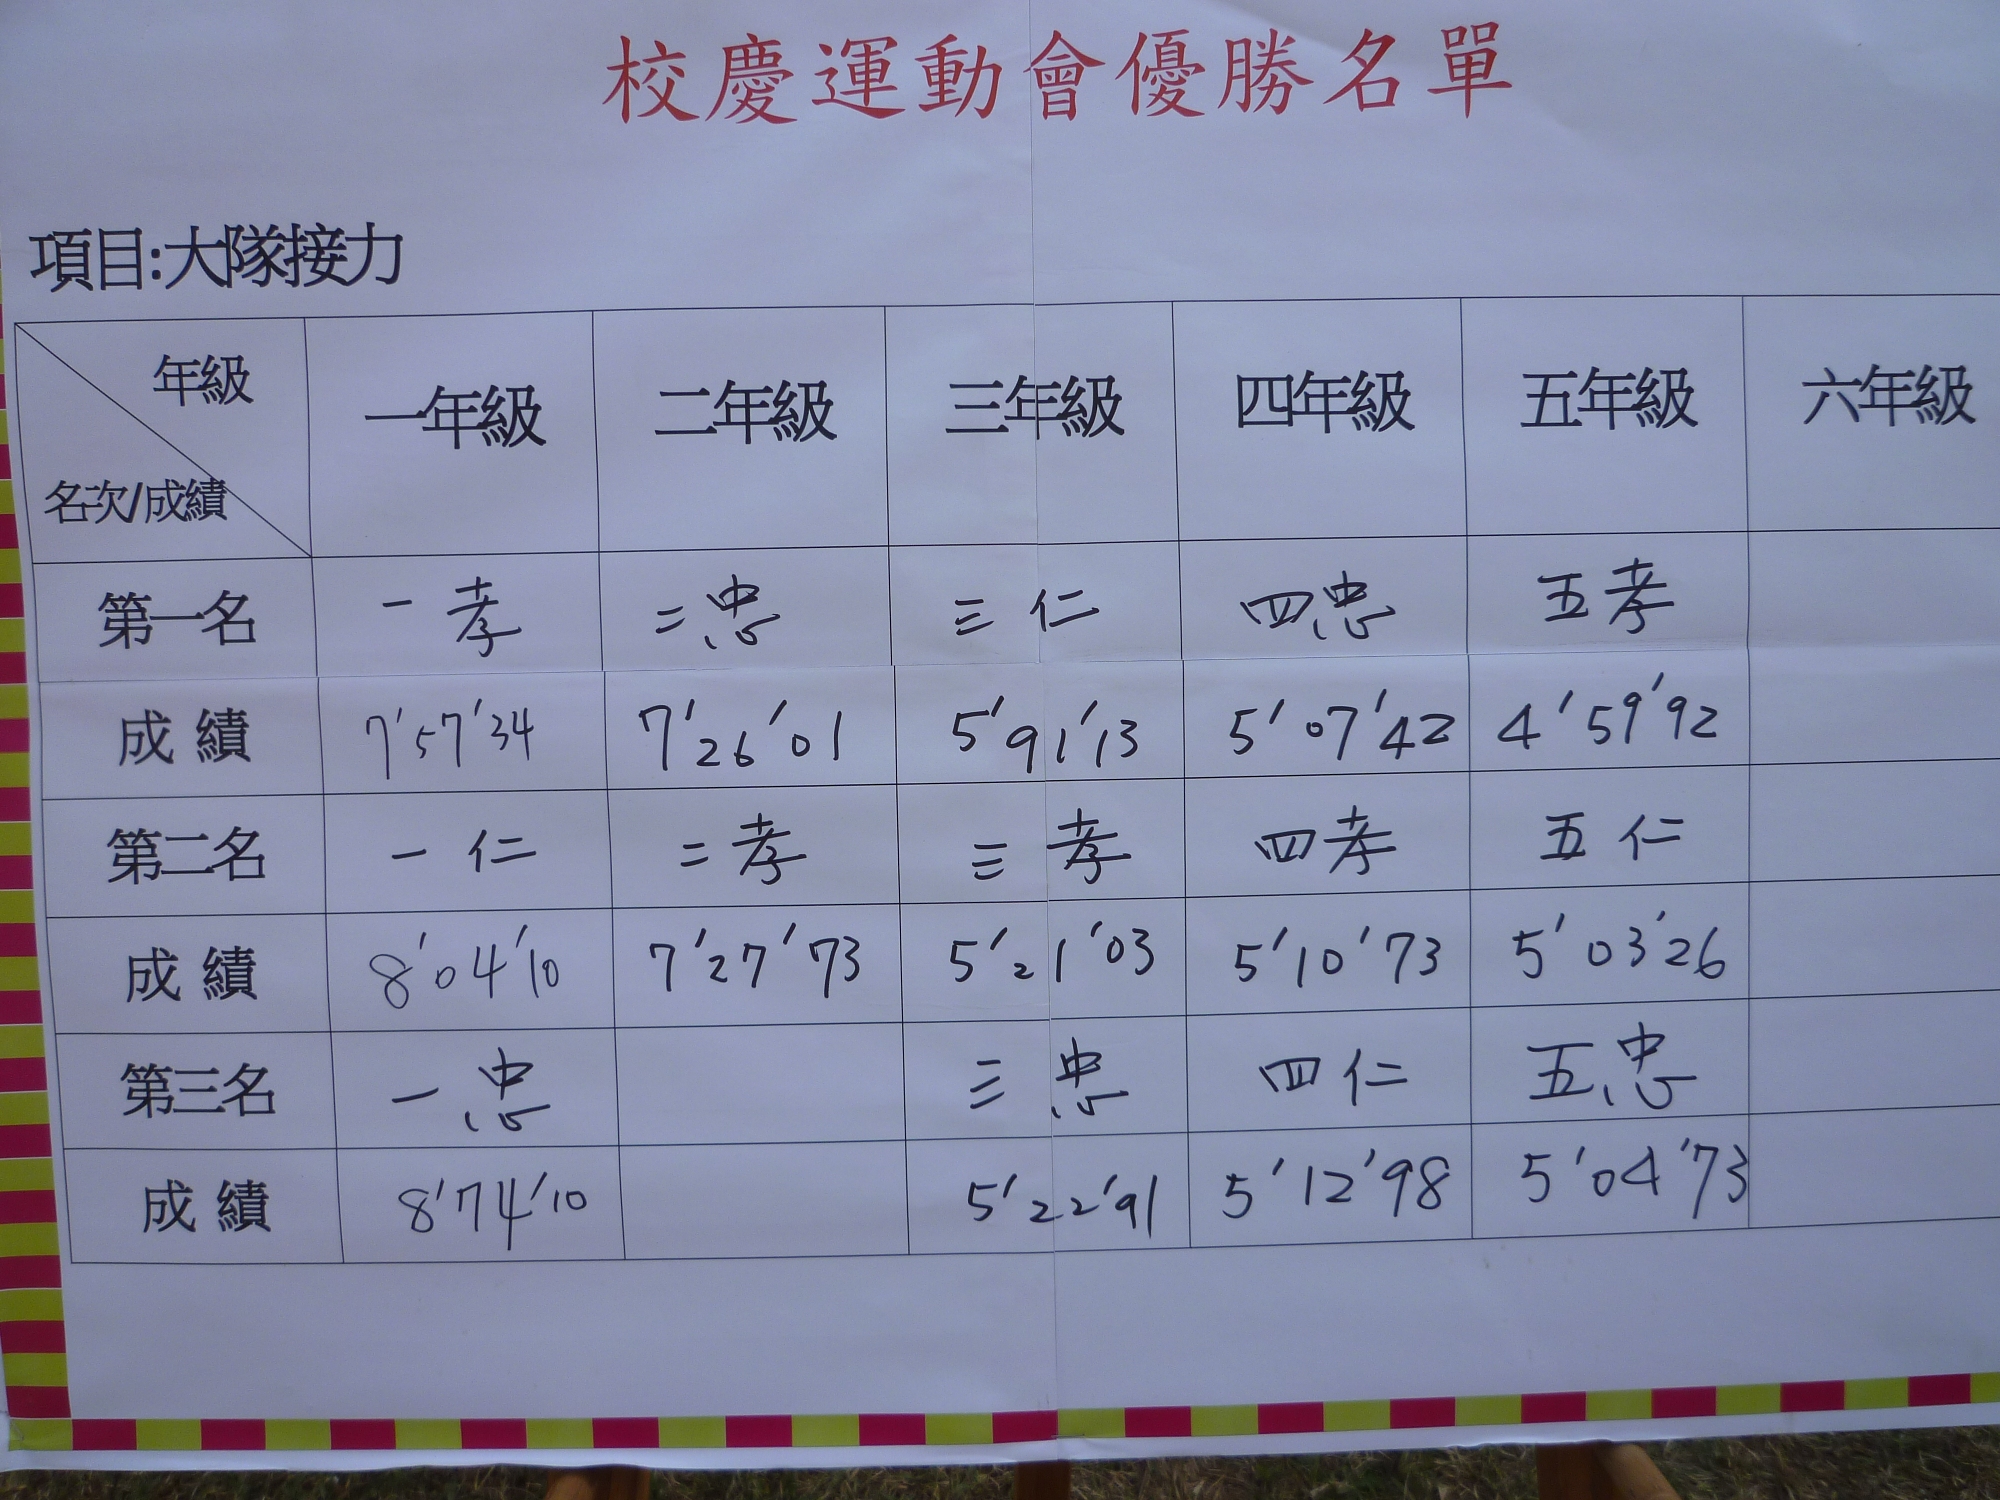 校慶運動會優勝名單
項目:大隊接力
年級 一年級 二年級 三年級 四年級 五年級 六年級
名次/成績
第一名 一孝 二忠 三仁 四忠 五孝
成績 7'57'34 7'26'01 5'91'13 5'07'42 4'59'92
第二名 一仁 二孝 三孝 四孝 五仁
成績 8'04'10 7'27'73 5'21'03 5'10'73 5'03'26
第三名 一忠 三忠 四仁 五忠
成績 8'74'10 5'22'91 5'12'98 5'04'73